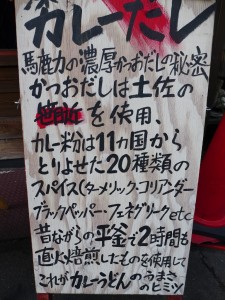 カレーだし
馬鹿力の濃厚かつおだしの秘密
かつおだしは土佐の
を使用、
カレー粉は11カ国から
とりよせた20種類の
スパイス(ターメリック・コリアンダー
ブラックペッパー・フェネグリークetc
昔ながらの平釜で2時間も
直火焙煎したものを使用して
これがカレーうどんのうまさ
のヒミツ